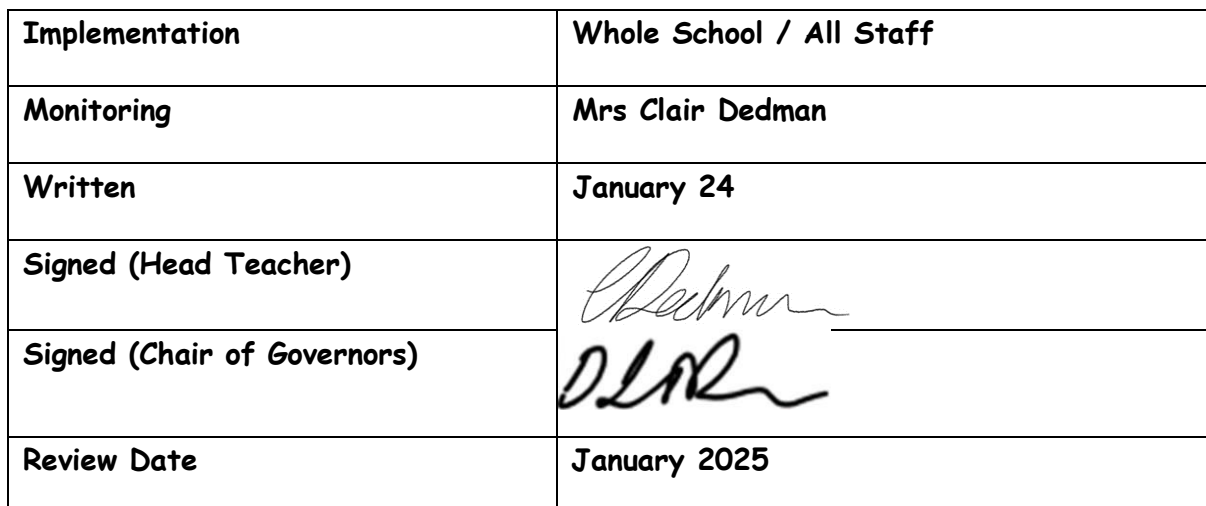 Implementation Whole School / All Staff
Monitoring Mrs Clair Dedman
Written January 24
Signed (Head Teacher) CDedman
Signed (Chair of Governors)
Review Date January 2025